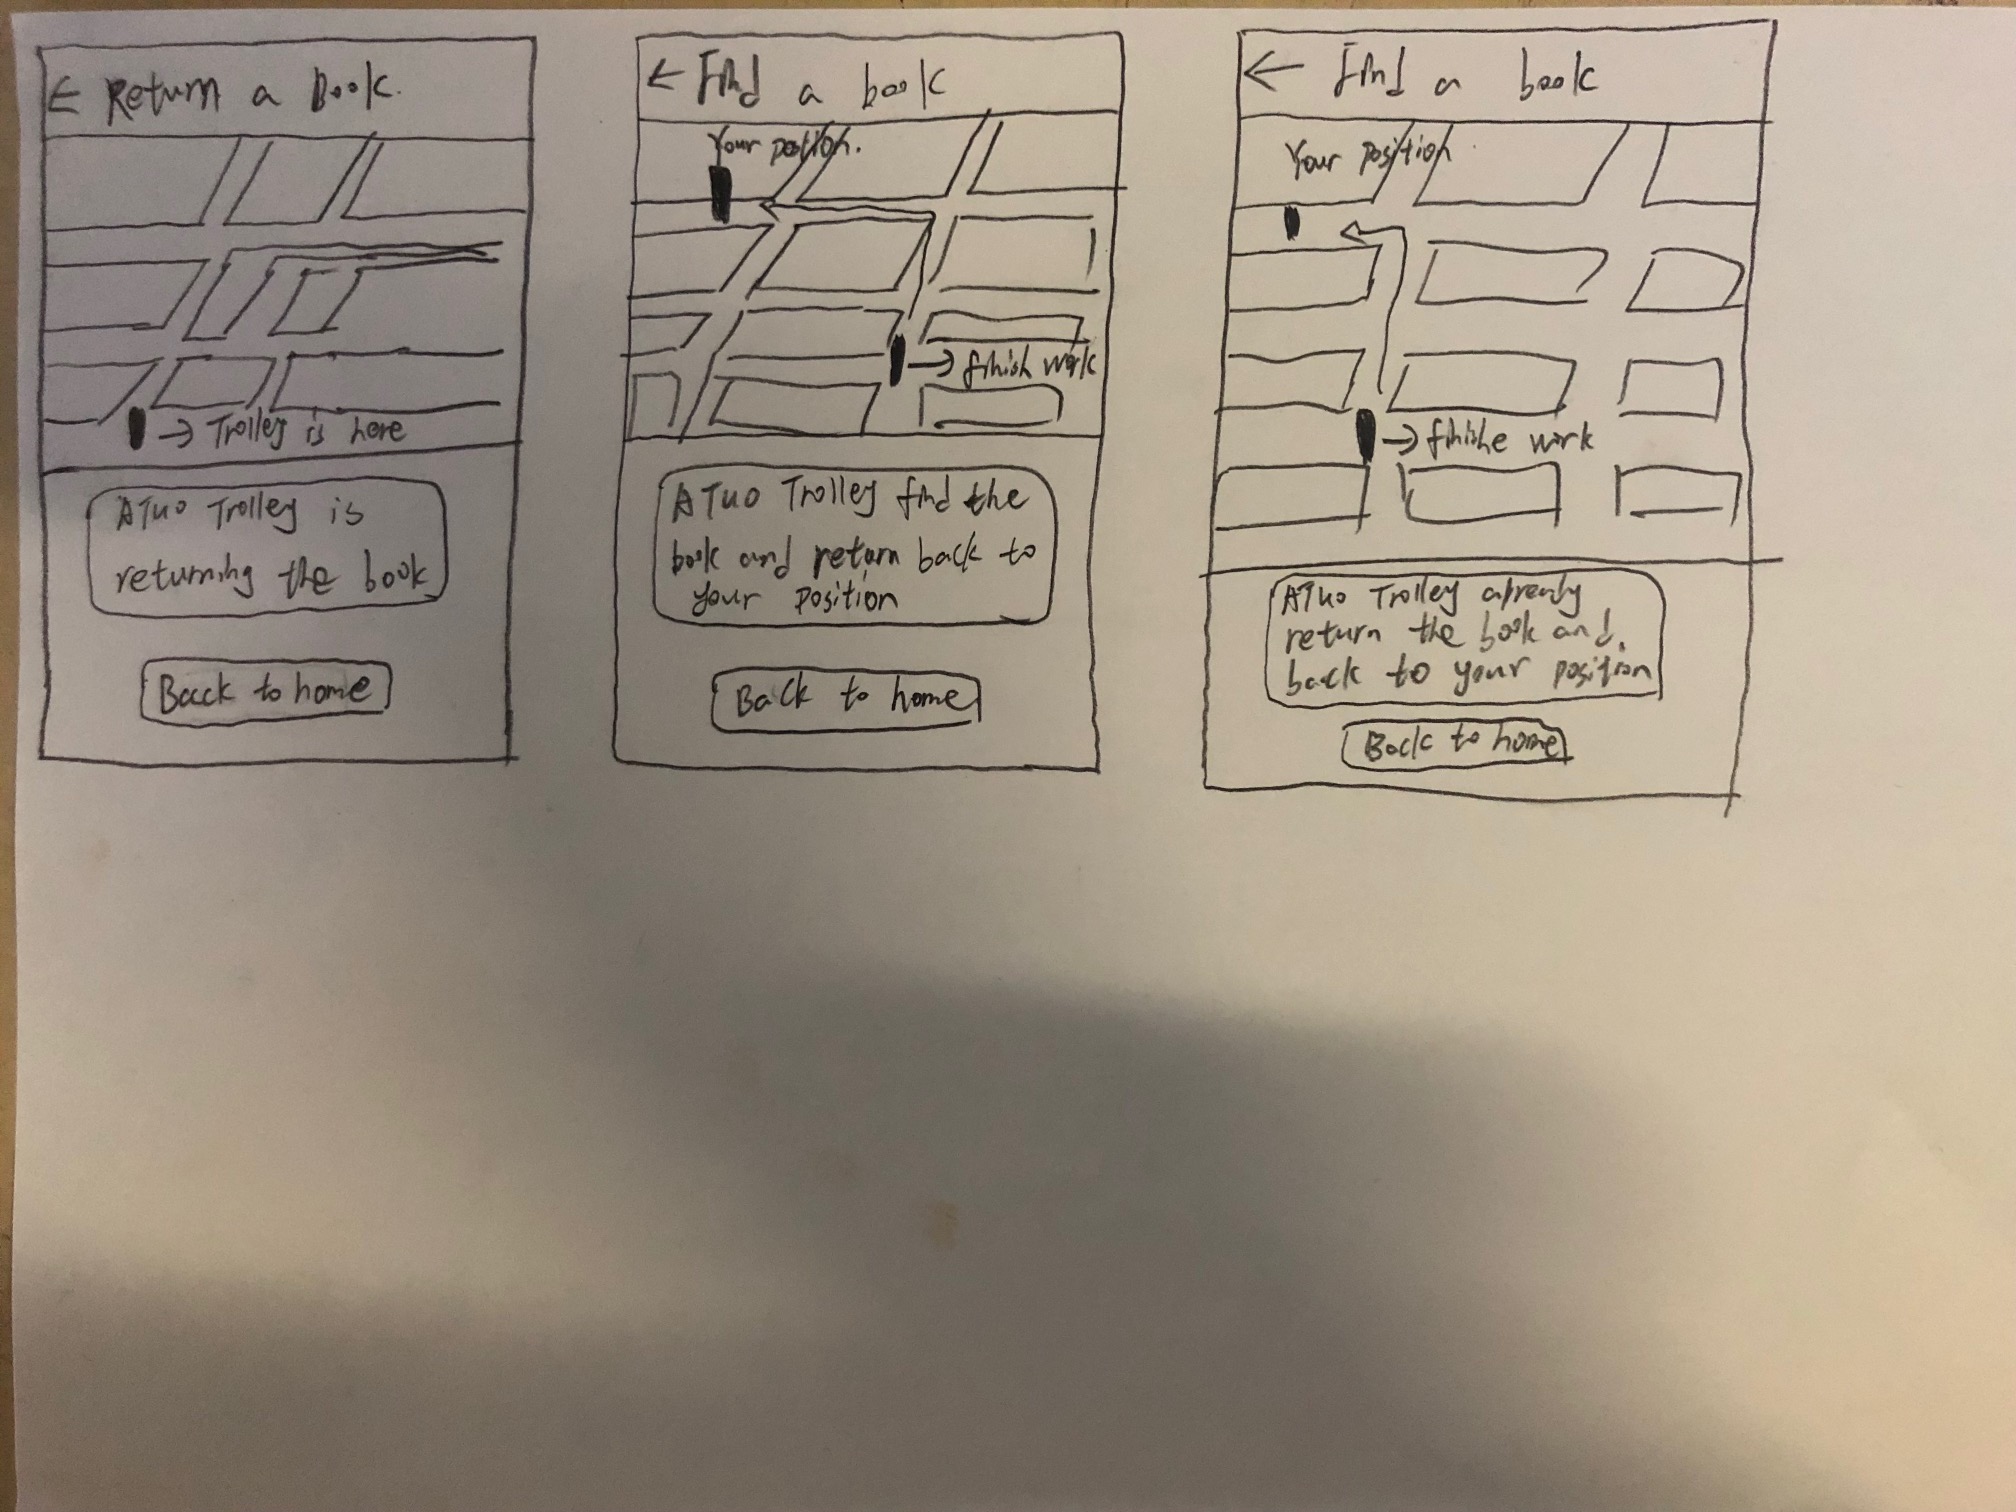 ← Return a Book.
→ Trolley is here
ATUO Trolley is
returning the book
Back to home
← Find a book
Your position.
→ finish work
ATUO Trolley find the
book and return back to
your position
Back to home
← Find a book
Your position
→ finishe work
ATUO Trolley already
return the book and.
back to your position
Back to home